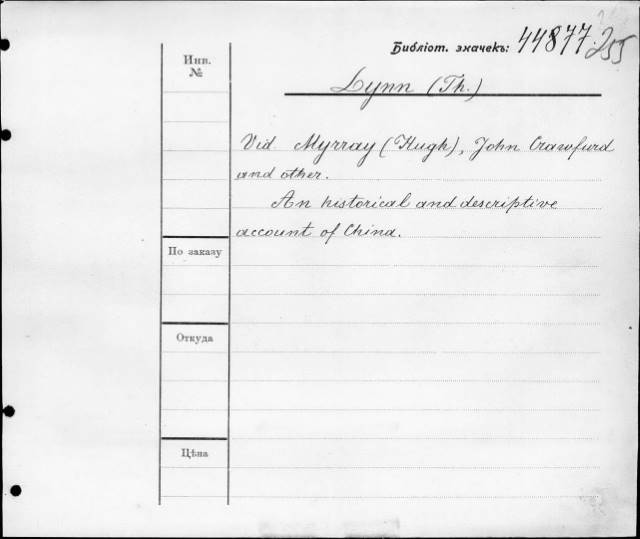 Библіот. значекъ: 44877.255
Инв. №
Lynn (Th.)
Vid Myrray (Hugh), John Crawfurd
and other.
An historical and descriptive
account of China.
По заказу
Откуда
Цѣна